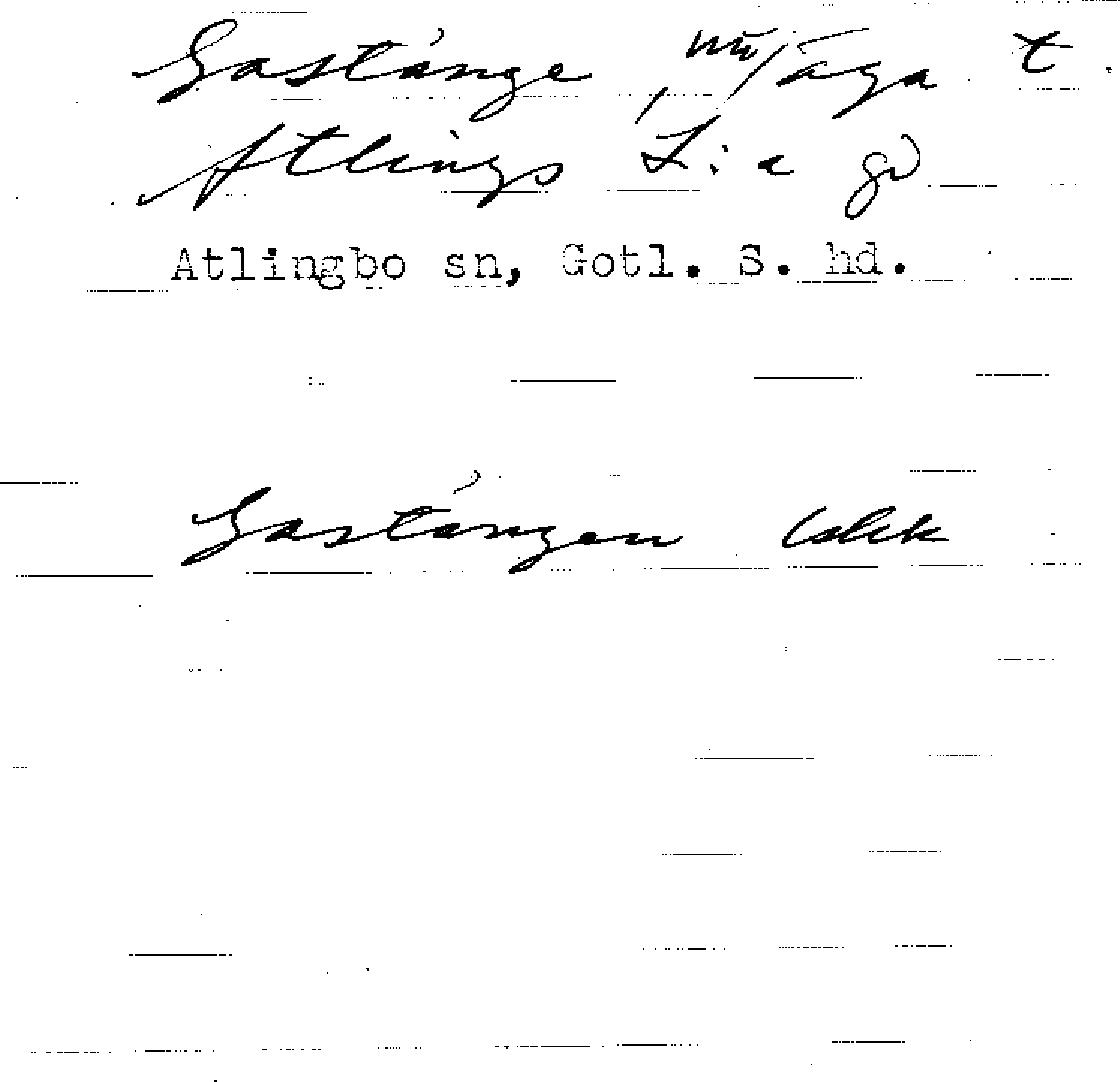 Gastänge, nu äga t.
Atlings L:a gd
Atlingbo sn, Gotl. S. hd.
Gastängen